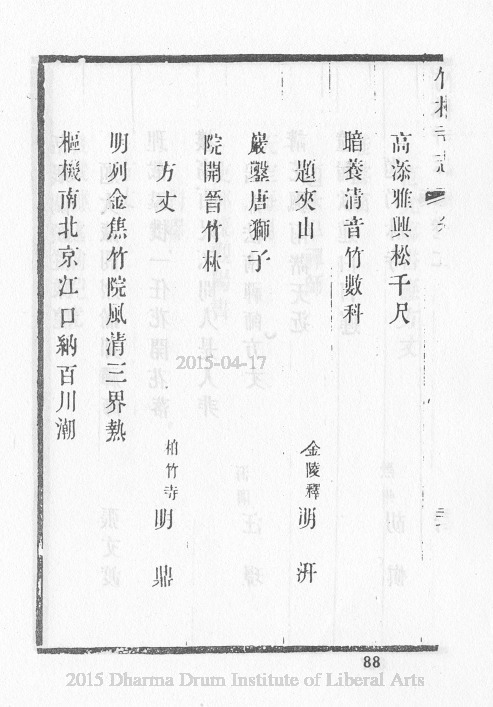 竹林寺志
高添雅興松千尺
暗養清音竹數科
題夾山 金陵釋
巖鑿唐獅子
院開晉竹林
方丈 柏竹寺 明鼎
明列金焦竹院風清三界熱
樞機南北京江口納百川潮
2015-04-17
88
2015 Dharma Drum Institute of Liberal Arts